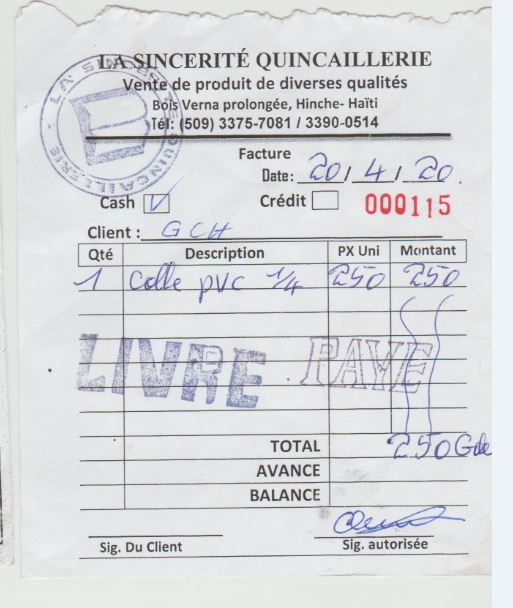 LA SINCERITÉ QUINCAILLERIE
Vente de produit de diverses qualités
Bois Verna prolongée, Hinche- Haïti
Tél: (509) 3375-7081 / 3390-0514
LA SINCERITE QUINCAILLERIE
Facture
Date: 20/4/20.
Cash Crédit 000115
Client : GCH
Qté Description PX Uni Montant
1 Colle pvc 1/4 250 250
LIVRE PAYE
TOTAL 250 Gde
AVANCE
BALANCE
Sig. Du Client Sig. autorisée